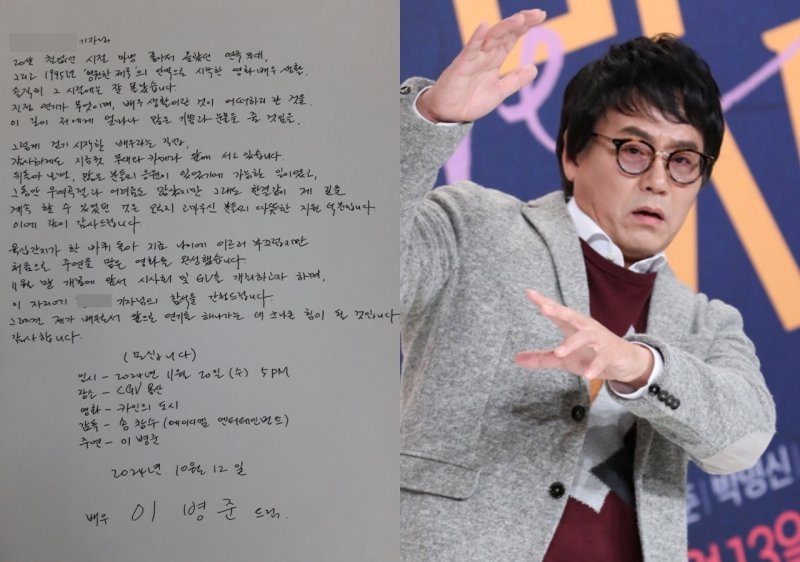 기자님
20대 철없던 시절 마냥 좋아서 올랐던 연극 무대,
그리고 1995년 '영원한 제국'의 단역으로 시작한 영화배우 생활.
솔직히 그 시절에는 잘 몰랐습니다
진정 연기가 무엇이며, 배우 생활이란 것이 어떠하리란 것을.
이 길이 저에게 얼마나 많은 기쁨과 눈물을 줄 것임을.
그렇게 걷기 시작한 배우라는 직업.
감사하게도 지금껏 무대와 카메라 앞에 서고 있습니다.
뒤돌아 보면, 많은 분들의 응원이 있었기에 가능한 일이었고,
그동안 우여곡절과 어려움도 많았지만 그래도 한결같이 제 길을
계속 할 수 있었던 것은 오로지 고마우신 분들의 따뜻한 지원 덕분입니다
이에 깊이 감사드립니다.
육십간지가 한 바퀴 돌아 지금 나이에 이르러 부끄럽지만
처음으로 주연을 맡은 영화를 완성했습니다.
11월 말 개봉에 앞서 시사회 및 GV를 개최하고자 하며,
이 자리에 기자님의 참석을 간청드립니다.
그래주시면 제가 배우로서 앞으로 연기를 해나가는 데 크나큰 힘이 될 것입니다
감사합니다.
(모십니다)
일시 - 2024년 11월 20일 (수) 5PM
장소 - CGV 용산
영화 - 카인의 도시
감독 - 송창수 (에이디엠 엔터테인먼트)
주연 - 이병준
2024년 10월 12일
배우 이 병 준 드림.
준 | 박명신 |
13일